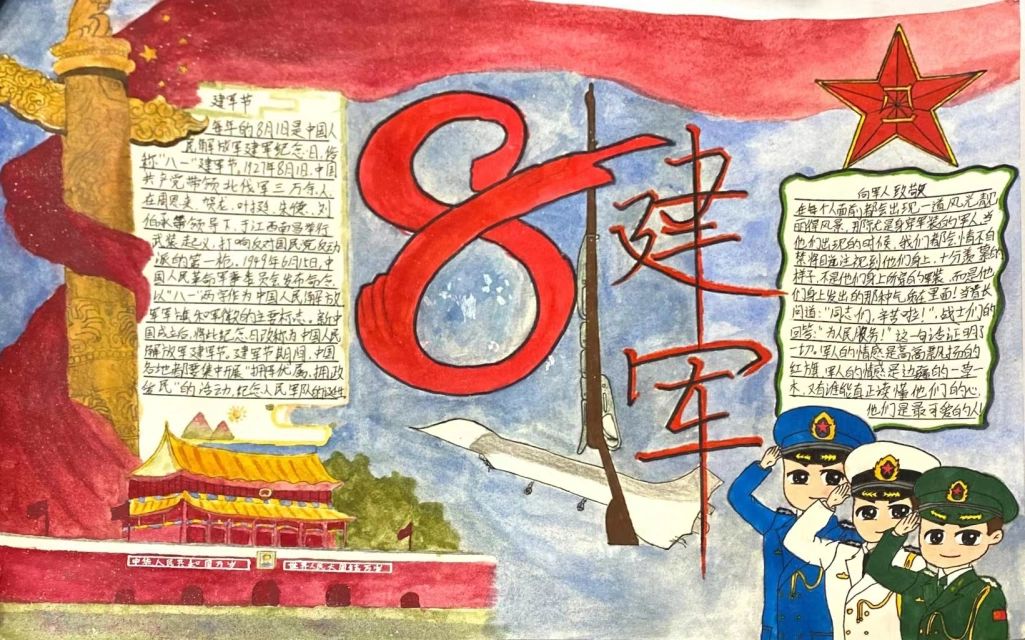 建军节
每年的8月1日是中国人
民解放军建军纪念日,俗
称“八一”建军节,1927年8月1日,中国
共产党带领北伐军三万余人
在周恩来、贺龙、叶挺、朱德、刘
伯承带领导下,于江西南昌举行
武装起义,打响反对国民党反动
派的第一枪。1949年6月15日,中
国人民革命军事委员会发布命令,
以“八一”两字作为中国人民解放
军军旗和军徽的主要标志。新中
国成立后,将此纪念日改称为中国人民
解放军建军节。建军节期间,中国
各地都要集中开展“拥军优属,拥政
爱民”的活动,纪念人民军队的诞生
8
1
建军
八一
向军人致敬
在每个人面前,都会出现一道风光靓
丽得风景,那就是身穿军装的军人,当
他们出现的时候,我们都会情不自
禁将目光注视到他们身上,十分羡慕的
样子,不是他们身上所穿的军装,而是他
们身上发出的那种气质在里面!当首长
问道:“同志们,辛苦啦!”,战士们的
回答:“为民服务!”这一句话证明了
一切。军人的情感是高高飘扬的
红旗,军人的情感是边疆的一草一
木,又有谁能真正读懂他们的心,
他们是最可爱的人
中华人民共和国万岁
世界人民大团结万岁